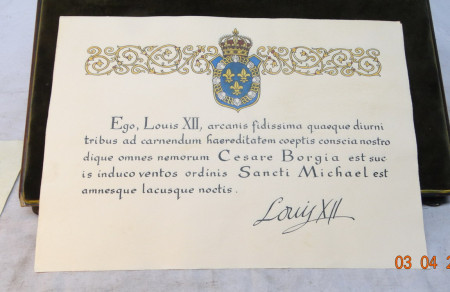 Ego, Louis XII, arcanis fidissima quaeque diurni
tribus ad carnendum haereditatem coeptis conscia nostro
dique omnes nemorum Cesare Borgia est suc
is induco ventos ordinis Sancti Michael est
amnesque lacusque noctis.
Louis XII
03 04 2